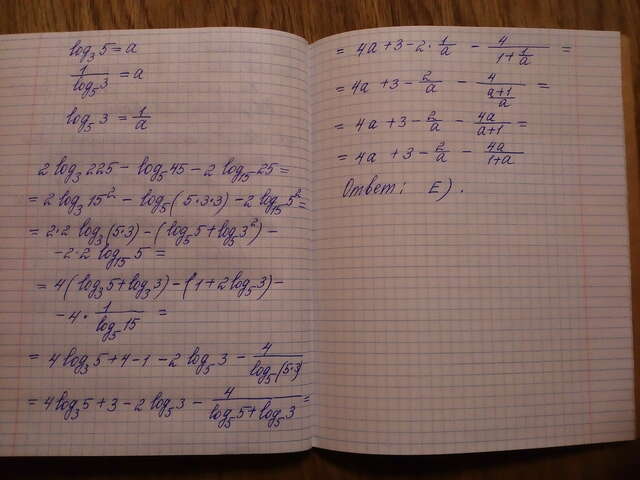 log₃5 = a
1/log₅3 = a
log₅3 = 1/a
2 log₃225 − log₅45 − 2 log₁₅25 =
= 2 log₃15² − log₅(5·3·3) − 2 log₁₅5² =
= 2·2 log₃(5·3) − (log₅5 + log₅3²) −
− 2·2 log₁₅5 =
= 4(log₃5 + log₃3) − (1 + 2 log₅3) −
− 4 · 1/log₅15 =
= 4 log₃5 + 4 − 1 − 2 log₅3 − 4/log₅(5·3)
= 4 log₃5 + 3 − 2 log₅3 − 4/(log₅5 + log₅3) =
= 4a + 3 − 2 · 1/a − 4/(1 + 1/a) =
= 4a + 3 − 2/a − 4/((a+1)/a) =
= 4a + 3 − 2/a − 4a/(a+1) =
= 4a + 3 − 2/a − 4a/(1+a)
Ответ: E).